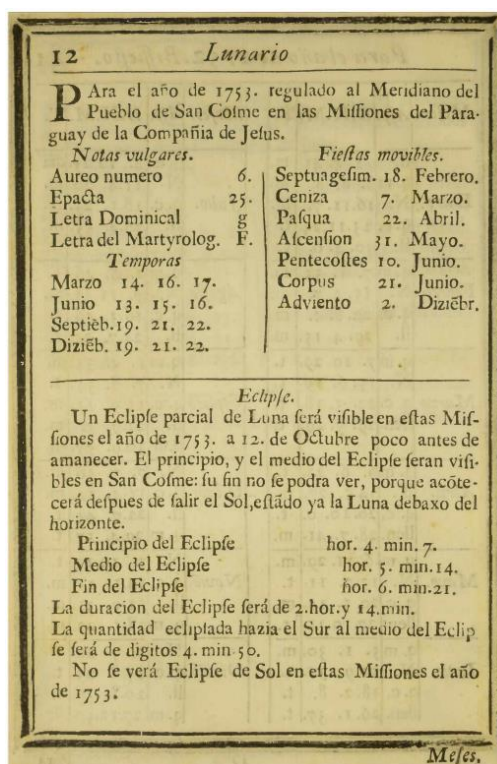 12 Lunario
PAra el año de 1753. regulado al Meridiano del
Pueblo de San Coſme en las Miſſiones del Para-
guay de la Compañia de Jeſus.
Notas vulgares.
Aureo numero 6.
Epacta 25.
Letra Dominical g
Letra del Martyrolog. F.
Temporas
Marzo 14. 16. 17.
Junio 13. 15. 16.
Septiēb. 19. 21. 22.
Diziēb. 19. 21. 22.
Fieſtas movibles.
Septuageſim. 18. Febrero.
Ceniza 7. Marzo.
Paſqua 22. Abril.
Aſcenſion 31. Mayo.
Pentecoſtes 10. Junio.
Corpus 21. Junio.
Adviento 2. Diziēbr.
Eclipſe.
Un Eclipſe parcial de Luna ſerá viſible en eſtas Miſ-
ſiones el año de 1753. a 12. de Octubre poco antes de
amanecer. El principio, y el medio del Eclipſe ſeran viſi-
bles en San Coſme: ſu fin no ſe podra ver, porque acōte-
cerá deſpues de ſalir el Sol, eſtādo ya la Luna debaxo del
horizonte.
Principio del Eclipſe hor. 4. min. 7.
Medio del Eclipſe hor. 5. min. 14.
Fin del Eclipſe hor. 6. min. 21.
La duracion del Eclipſe ſerá de 2. hor. y 14. min.
La quantidad eclipſada hazia el Sur al medio del Eclip
ſe ſerá de digitos 4. min. 50.
No ſe verá Eclipſe de Sol en eſtas Miſſiones el año
de 1753.
Meſes.